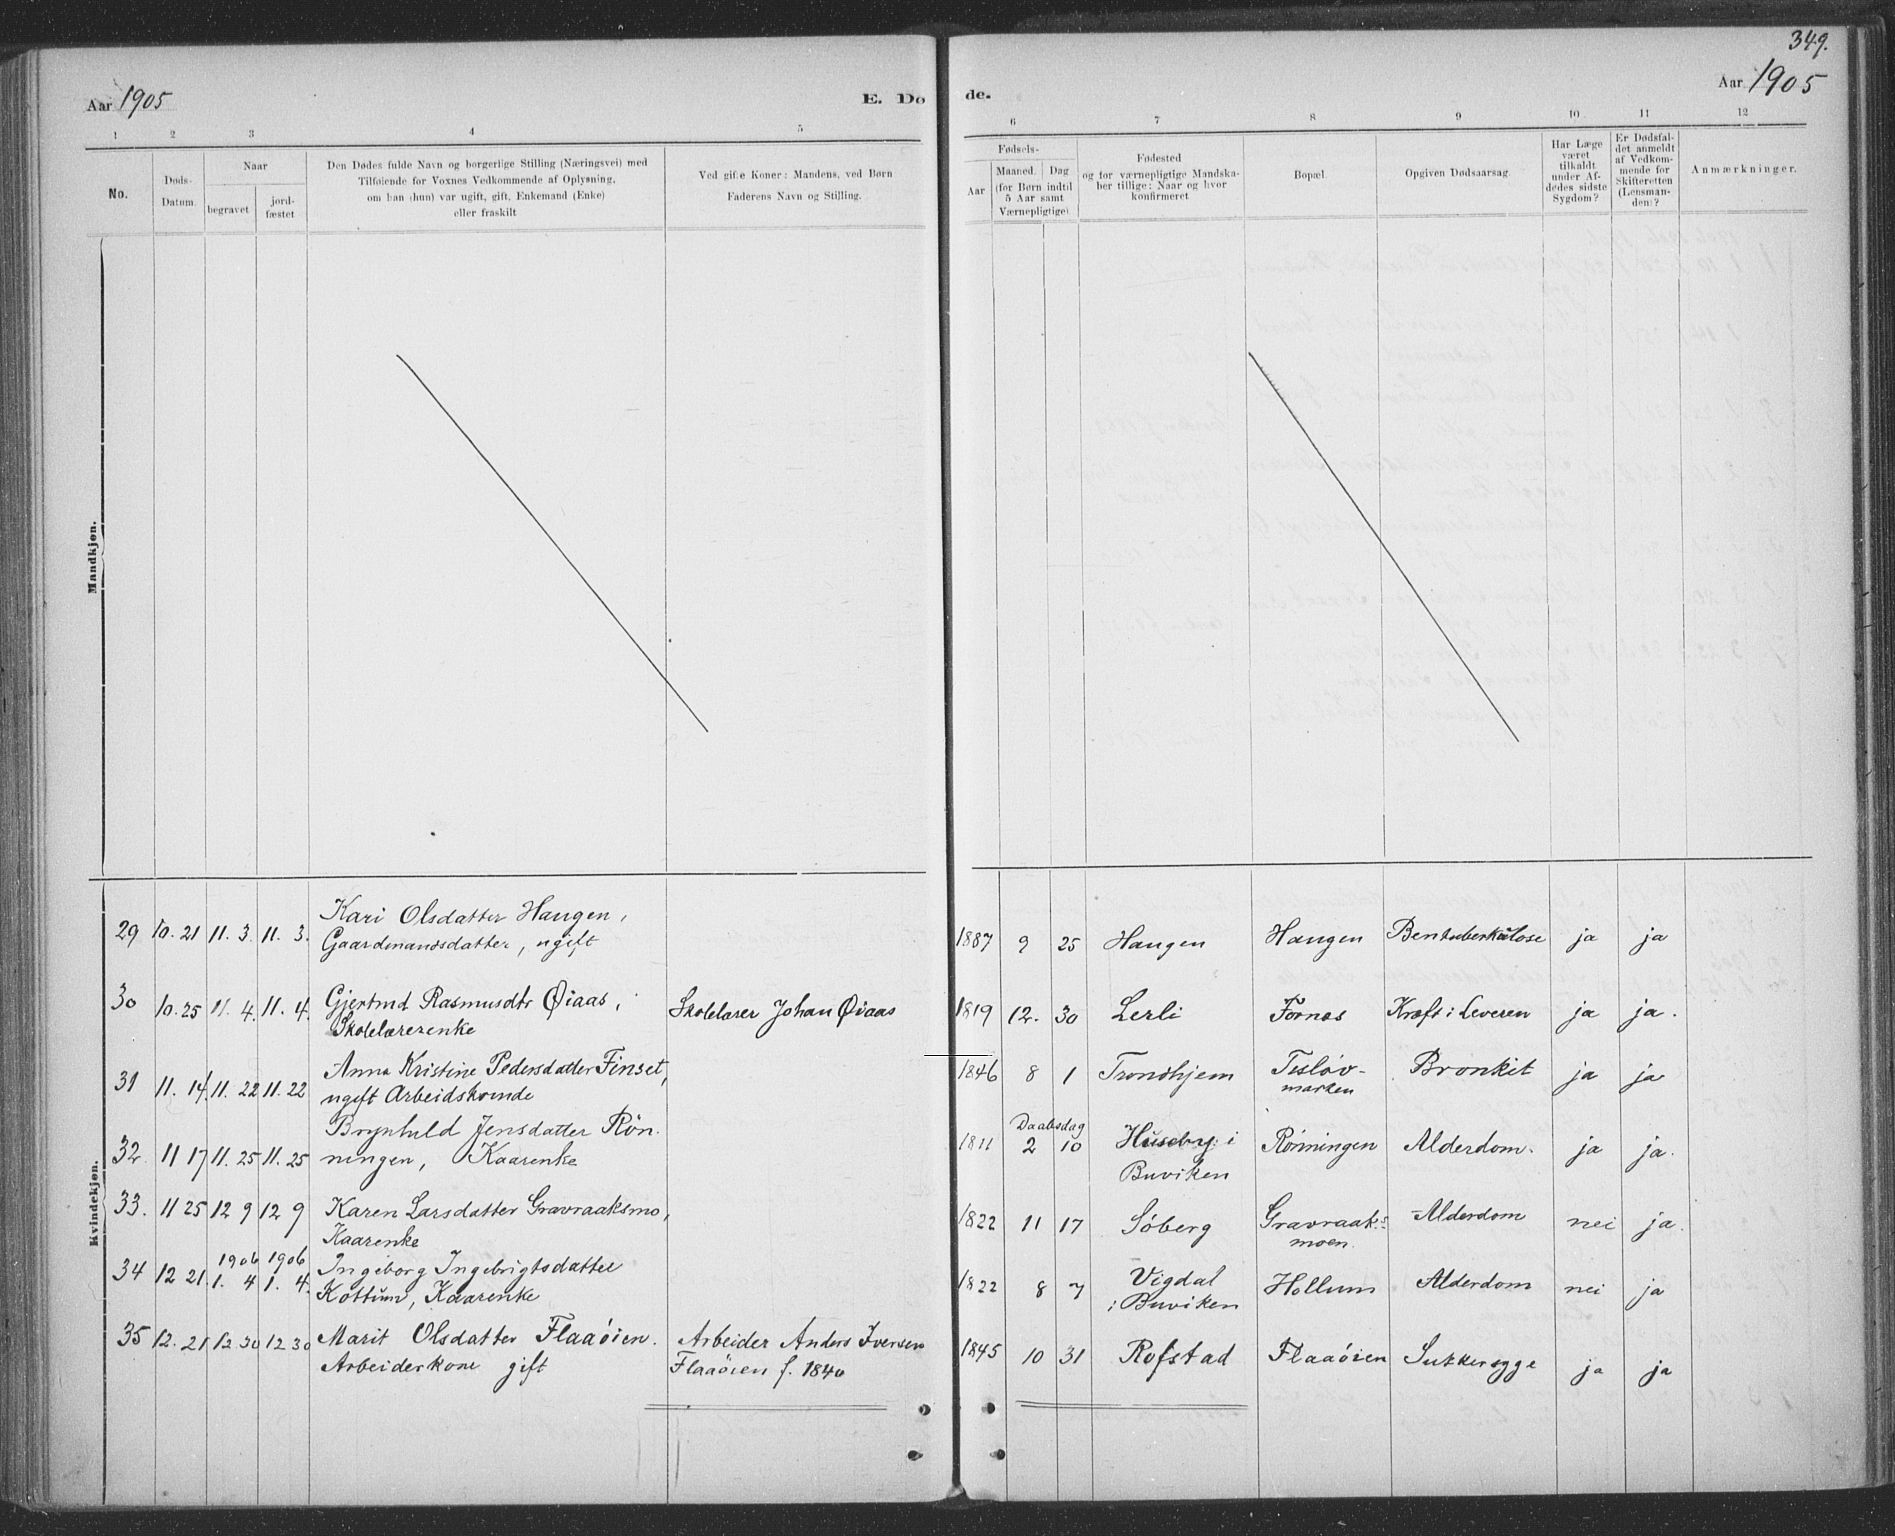 349.
Aar 1905
E. Dø
de.
Aar 1905
1 2 3 4 5
6 7 8 9 10 11 12
No.
Døds-
Datum.
Naar
begravet
jord-
fæstet
Den Dødes fulde Navn og borgerlige Stilling (Næringsvei) med
Tilføiende for Voxnes Vedkommende af Oplysning,
om han (hun) var ugift, gift, Enkemand (Enke)
eller fraskilt
Ved gifte Koner: Mandens, ved Børn
Faderens Navn og Stilling.
Fødsels-
Aar
Maaned. Dag
(for Børn indtil
5 Aar samt
Værnepligtige)
Fødested
og for værnepligtige Mandska-
ber tillige: Naar og hvor
konfirmeret
Bopæl.
Opgiven Dødsaarsag.
Har Læge
været
tilkaldt
under Af-
dødes sidste
Sygdom?
Er Dødsfal-
det anmeldt
af Vedkom-
mende for
Skifteretten
(Lensman-
den)?
Anmærkninger.
Mandkjøn.
Kvindekjøn.
29 10. 21 11. 3. 11. 3. Kari Olsdatter Haugen,
Gaardmandsdatter, ugift
1887 9 25 Haugen Haugen Bentuberkulose ja ja
30 10. 25 11. 4. 11. 4. Gjertrud Rasmusdtr Øiaas,
Skolelærerenke
Skolelærer Johan Øiaas
1819 12. 30 Lerli Fornes Kræft i Leveren ja ja.
31 11. 14. 11. 22 11. 22 Anna Kristine Pedersdatter Finset,
ugift Arbeidskvinde
1846 8 1 Trondhjem Tesløv-
marken
Bronkit ja ja
32. 11 17 11. 25 11. 25 Brynhild Jensdatter Røn-
ningen, Kaarenke
1811 Daabsdag
2 10 Huseby i
Buviken
Rønningen Alderdom. ja ja.
33. 11 25 12 9 12 9 Karen Larsdatter Gravraaksmo,
Kaarenke
1822 11 17 Søberg Gravraaks-
moen.
Alderdom nei ja.
34 12 21. 1906
1. 4 1906
1. 4. Ingeborg Ingebrigtsdatter
Kottum, Kaarenke
1822 8 7 Vigdal
i Buviken
Hollum Alderdom nei ja
35 12. 21 12. 30 12 30 Marit Olsdatter Flaaøien.
Arbeiderkone gift
Arbeider Anders Iversen
Flaaøien f. 1840
1845 10 31 Rofstad Flaaøien Sukkersyge ja ja